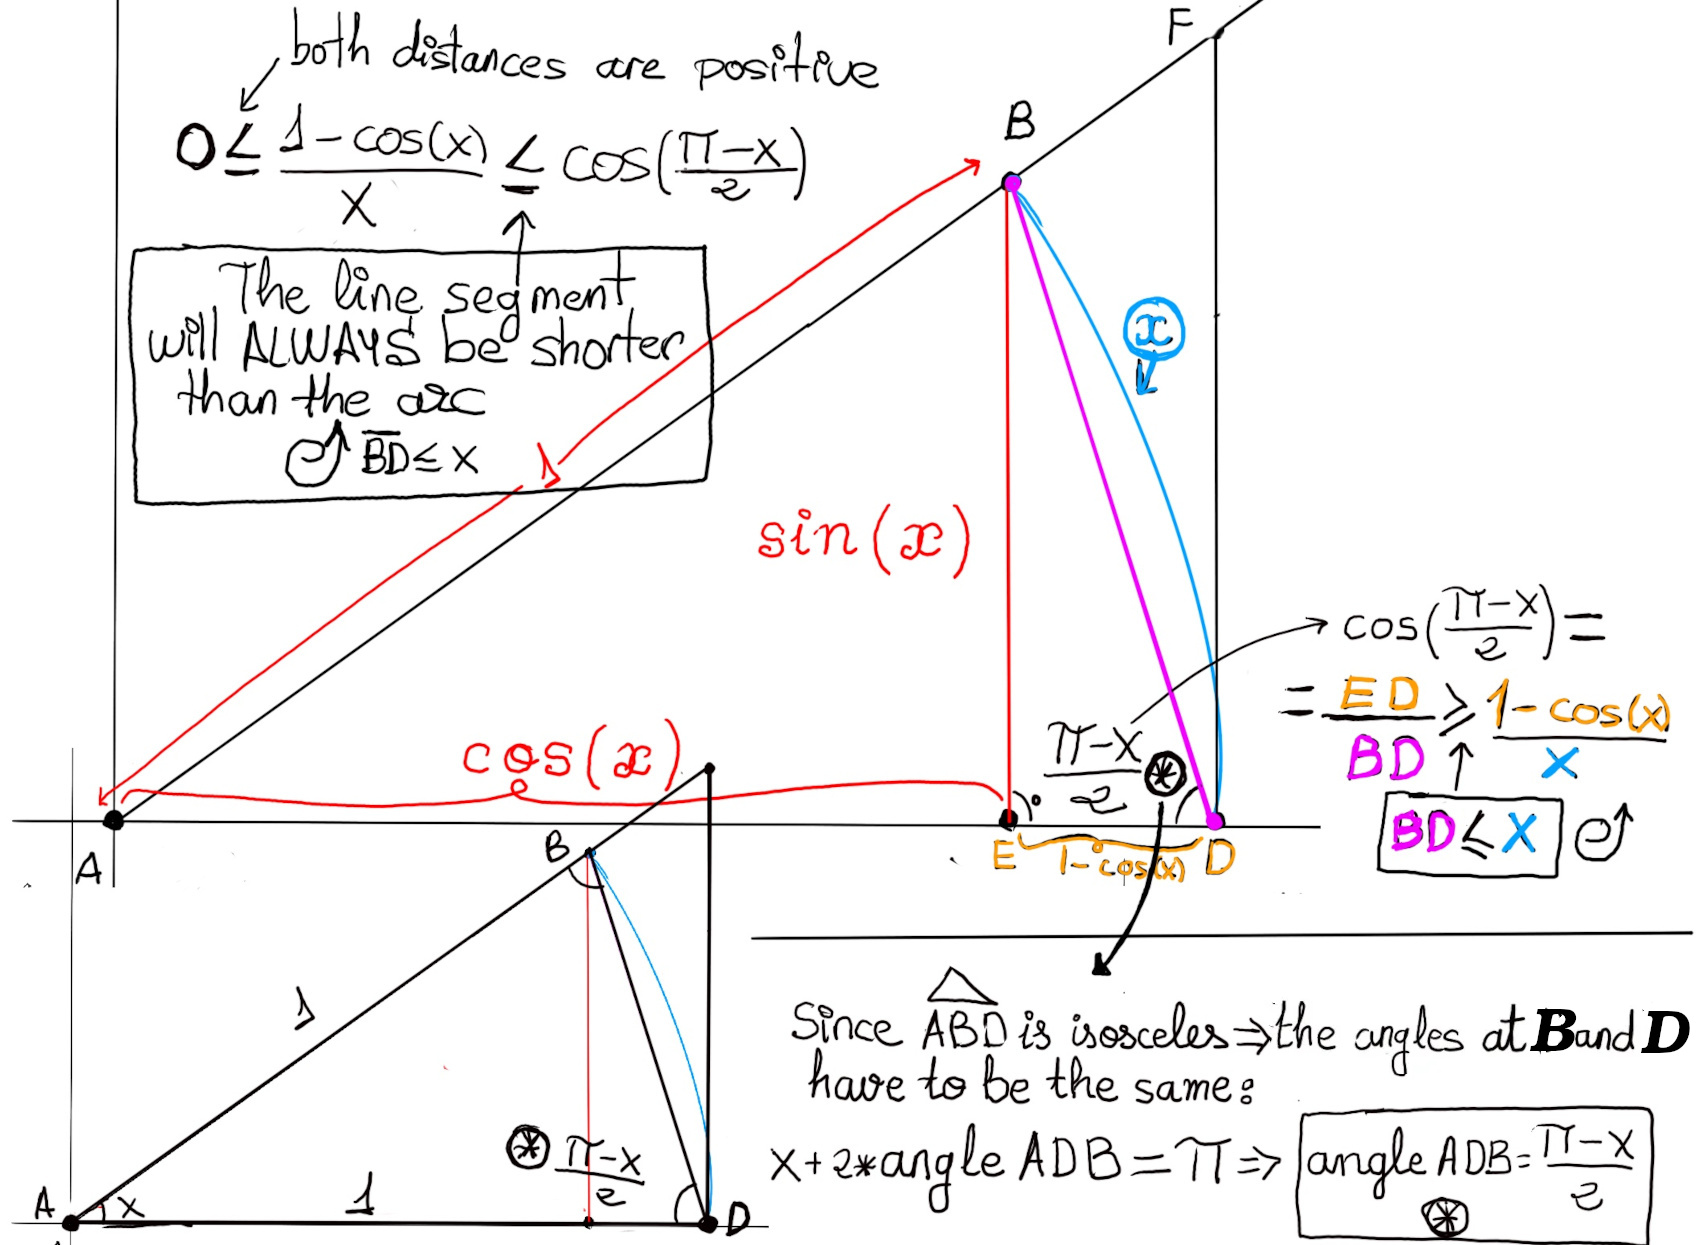 both distances are positive
0 ≤ (1-cos(x))/x ≤ cos((π-x)/2)
The line segment
will ALWAYS be shorter
than the arc
BD ≤ x
F
B
x
1
sin(x)
cos(x)
A
E
1-cos(x)
D
(π-x)/2 ⊛
cos((π-x)/2) =
= ED/BD ≥ (1-cos(x))/x
BD ≤ x
B
1
A
x
1
⊛ (π-x)/2
D
Since ABD is isosceles ⇒ the angles at B and D
have to be the same:
x+2*angle ADB = π ⇒ angle ADB = (π-x)/2
⊛